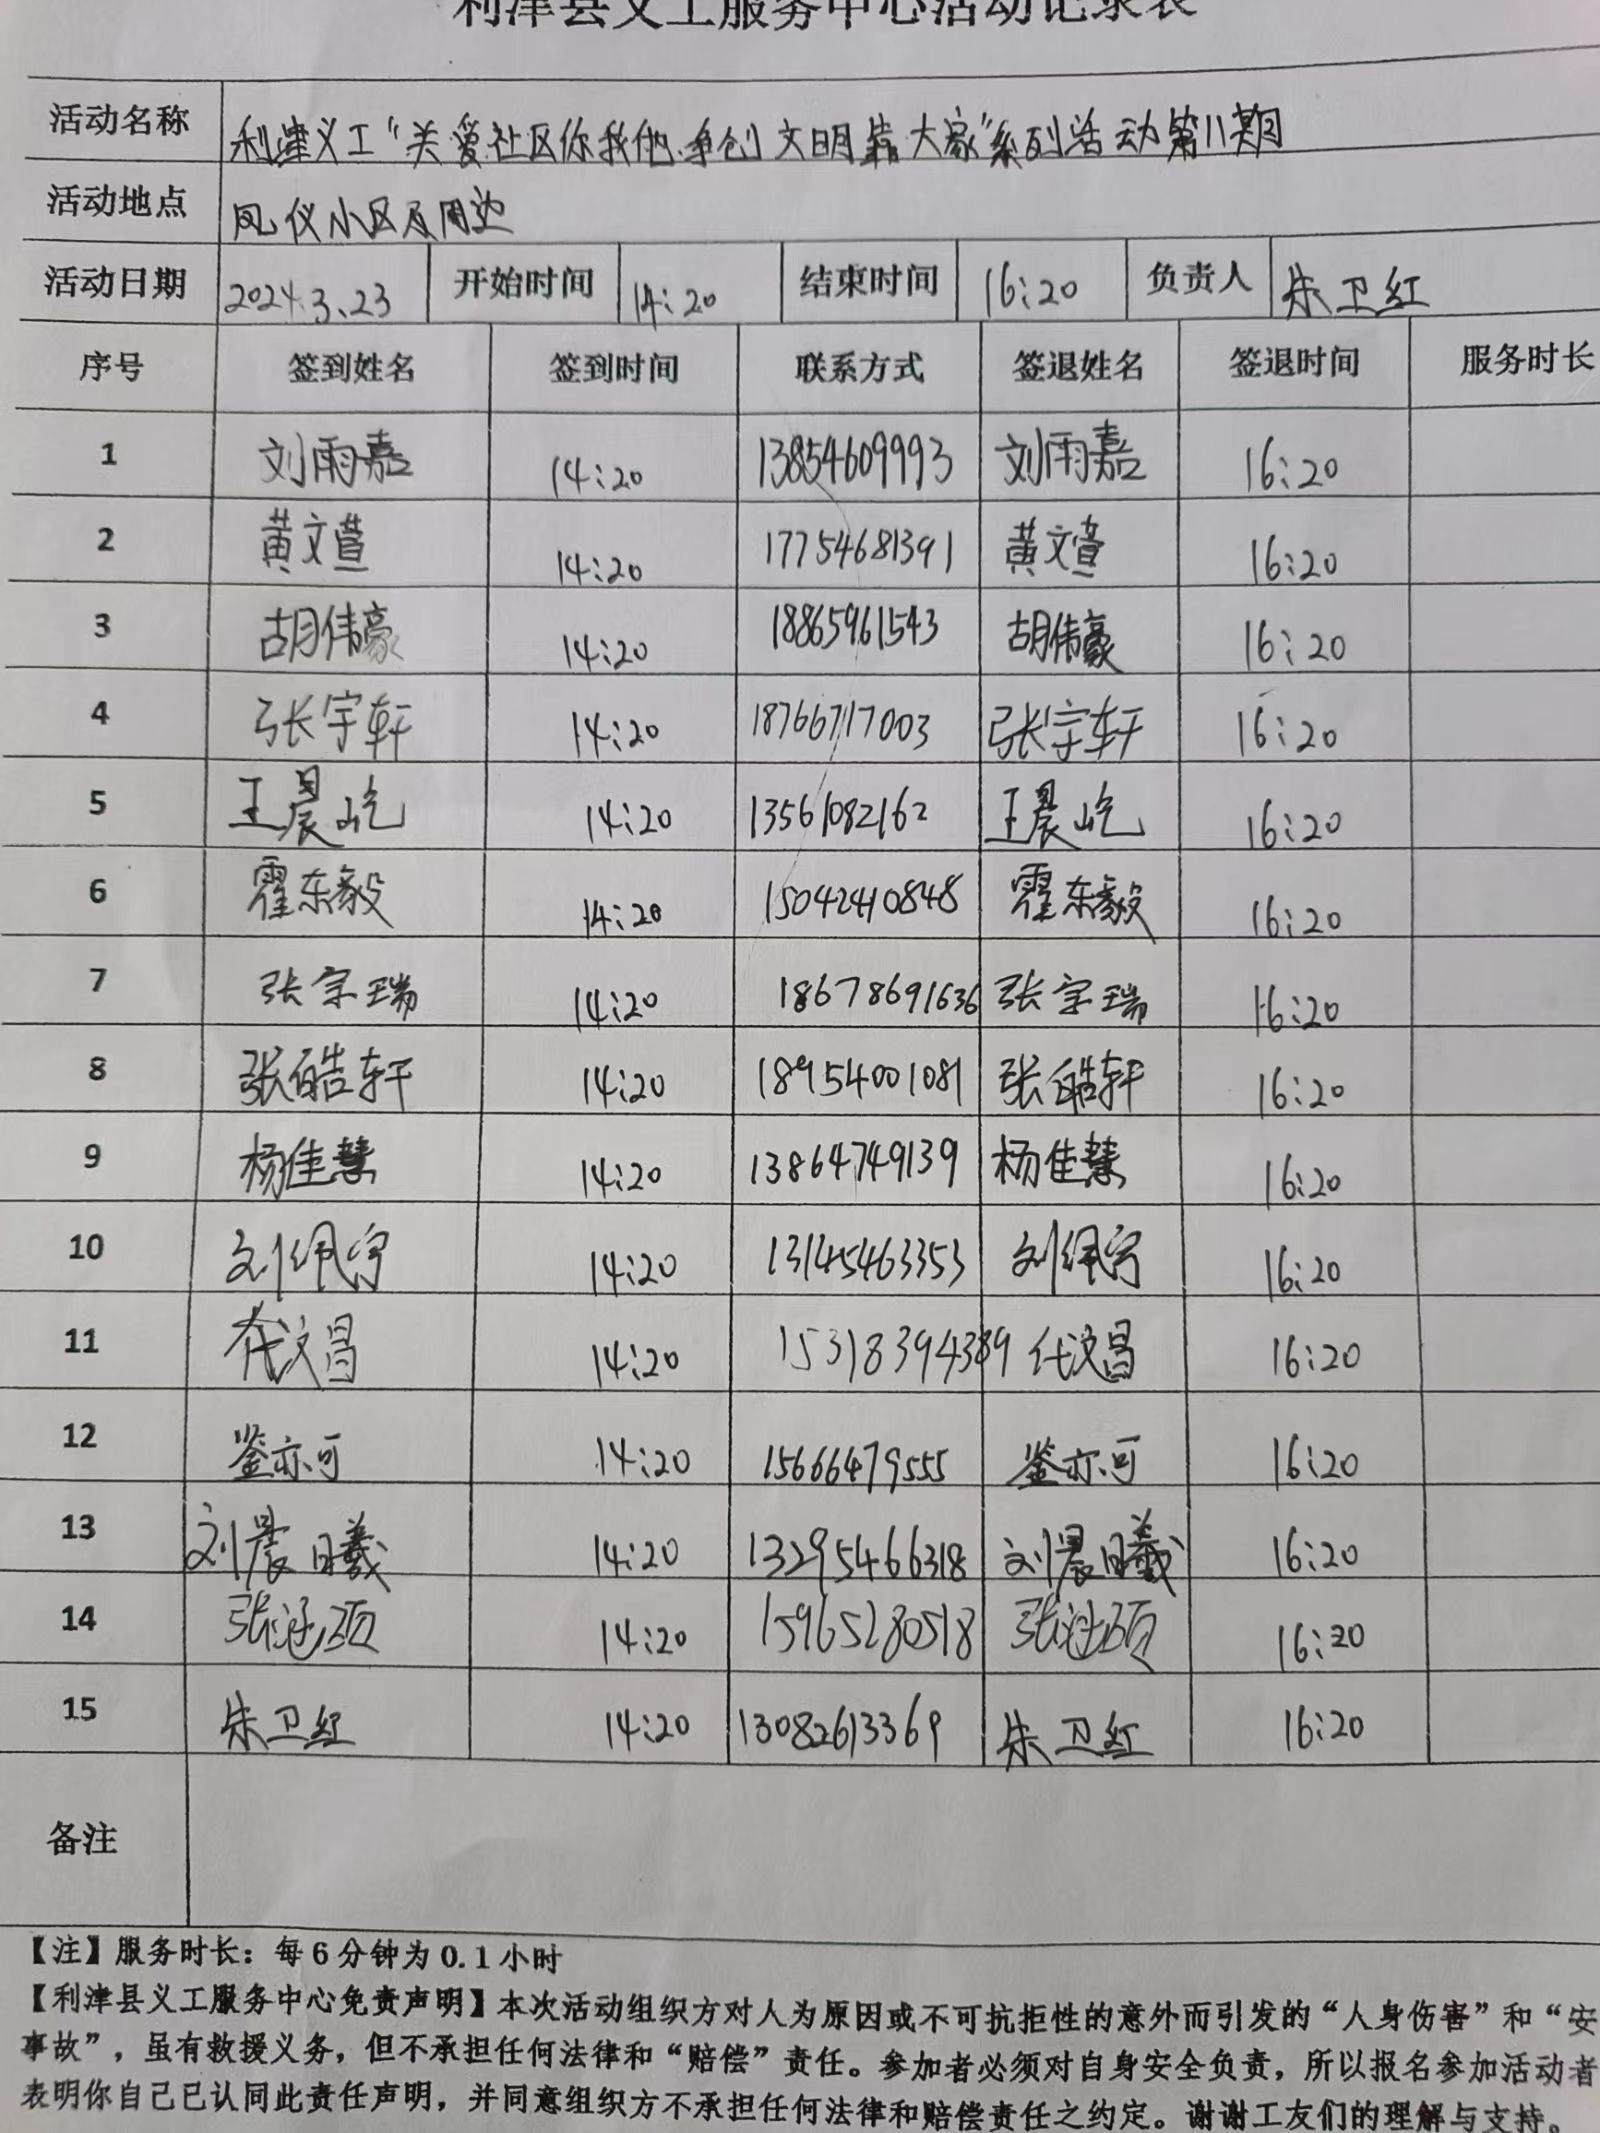 利津县义工服务中心活动记录表
活动名称 利津义工“关爱社区你我他.争创文明靠大家”系列活动第11期
活动地点 凤仪小区及周边
活动日期 2024.3.23 开始时间 14:20 结束时间 16:20 负责人 朱卫红
序号 签到姓名 签到时间 联系方式 签退姓名 签退时间 服务时长
1 刘雨嘉 14:20 13854609993 刘雨嘉 16:20
2 黄文萱 14:20 17754681391 黄文萱 16:20
3 胡伟豪 14:20 18865961543 胡伟豪 16:20
4 张宇轩 14:20 18766717003 张宇轩 16:20
5 王晨屹 14:20 13561082162 王晨屹 16:20
6 霍东毅 14:20 15042410848 霍东毅 16:20
7 张宇瑞 14:20 18678691636 张宇瑞 16:20
8 张皓轩 14:20 18954001081 张皓轩 16:20
9 杨佳慧 14:20 13864749139 杨佳慧 16:20
10 刘佩宇 14:20 13145463353 刘佩宇 16:20
11 代汶昌 14:20 15318394389 代汶昌 16:20
12 亦可 14:20 15666479555 亦可 16:20
13 刘晨曦 14:20 13295466318 刘晨曦 16:20
14 张涵硕 14:20 15965280518 张涵硕 16:20
15 朱卫红 14:20 13082613369 朱卫红 16:20
备注
【注】服务时长：每6分钟为0.1小时
【利津县义工服务中心免责声明】本次活动组织方对人为原因或不可抗拒性的意外而引发的“人身伤害”和“安
事故”，虽有救援义务，但不承担任何法律和“赔偿”责任。参加者必须对自身安全负责，所以报名参加活动者
表明你自己已认同此责任声明，并同意组织方不承担任何法律和赔偿责任之约定。谢谢工友们的理解与支持。